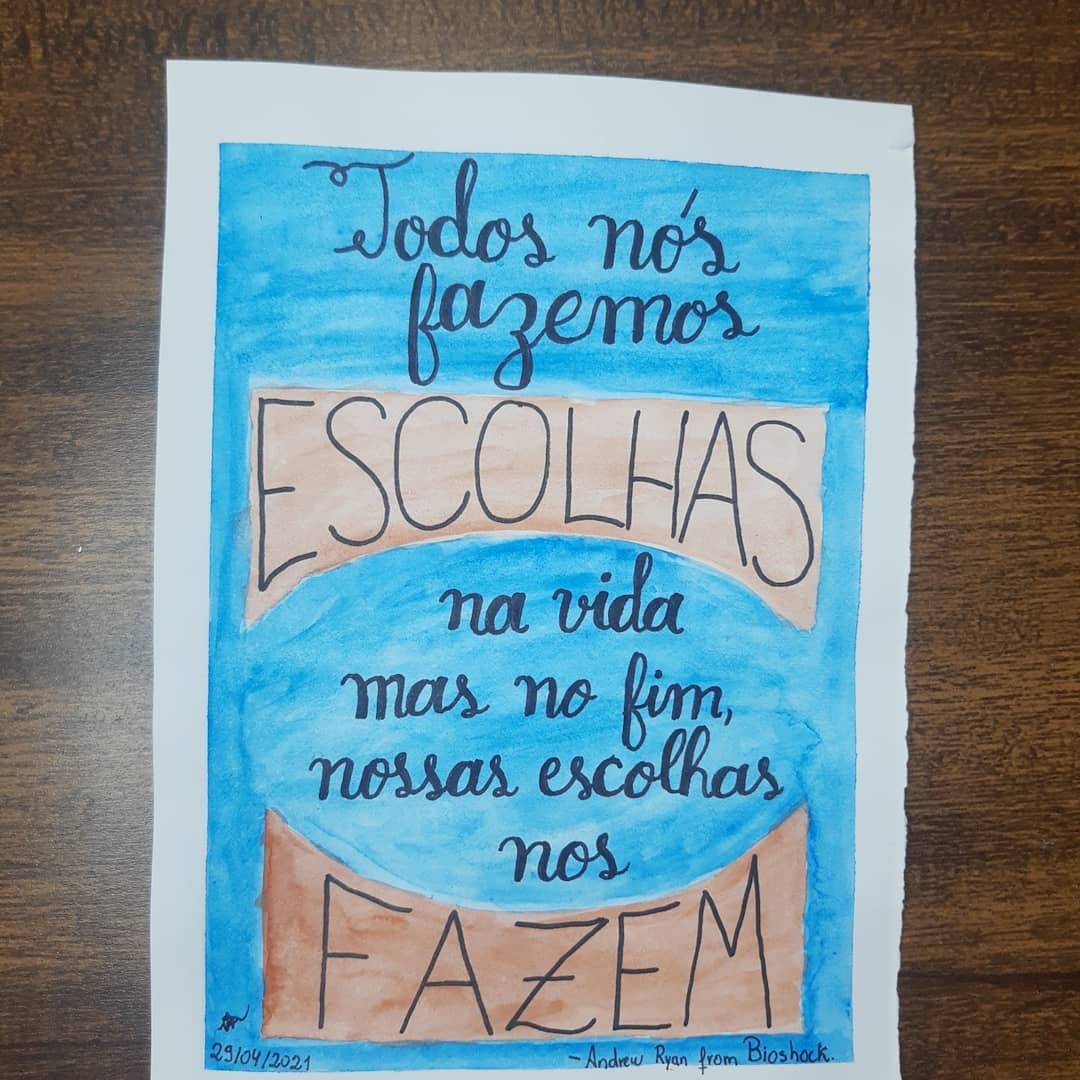 Todos nós
fazemos
ESCOLHAS
na vida
mas no fim,
nossas escolhas
nos
FAZEM
29/04/2021
- Andrew Ryan from Bioshock.